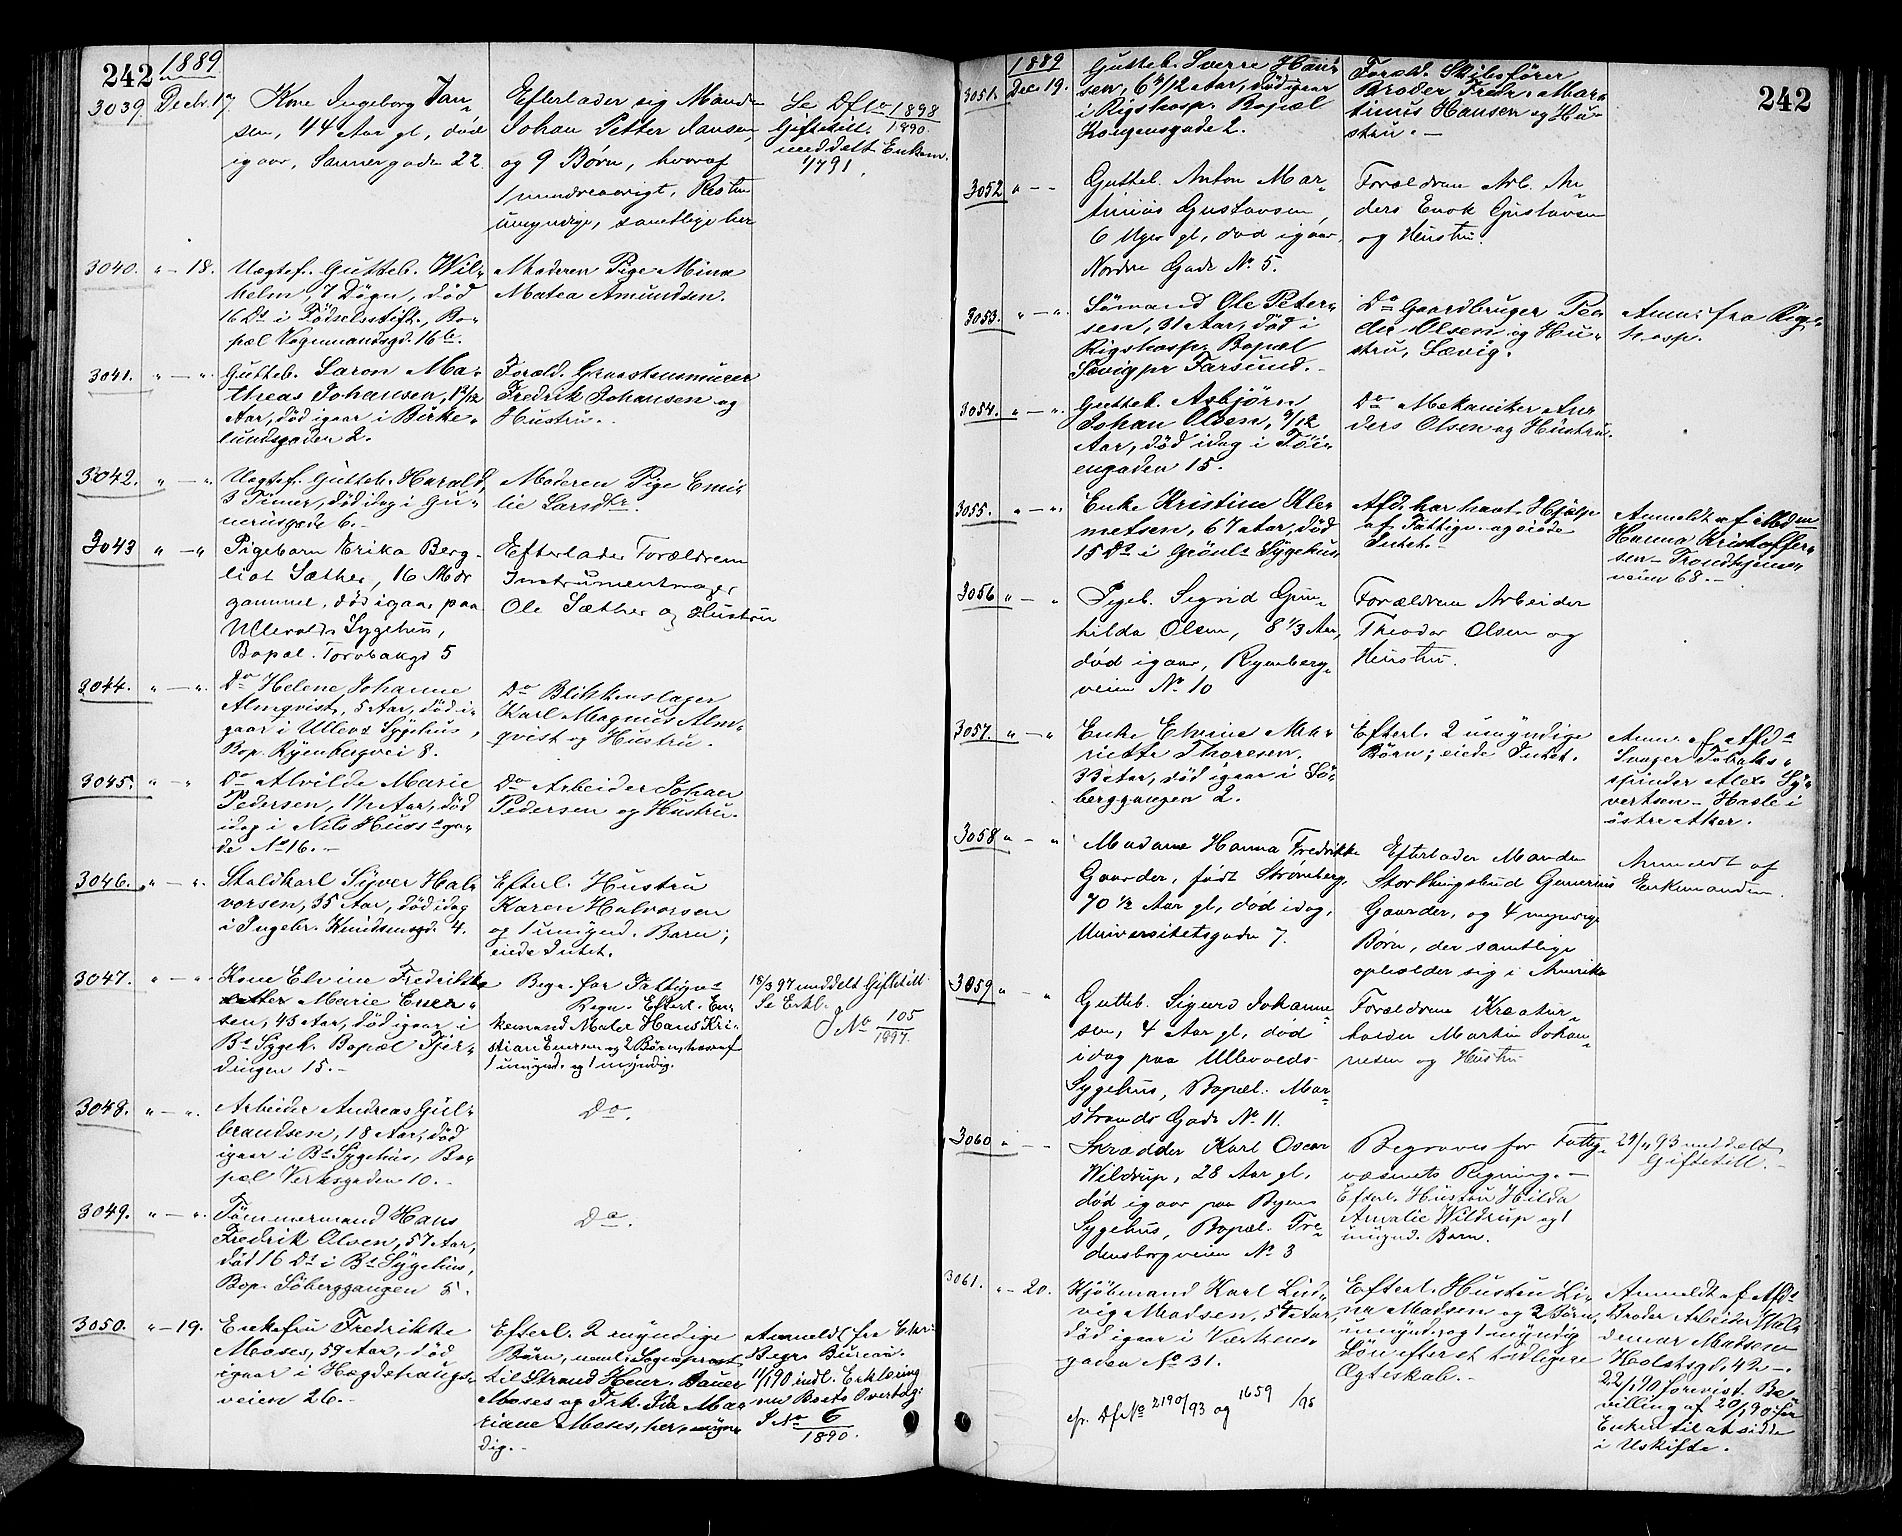 242
1889
3039 Decbr. 17.
Kone Ingeborg Jan-
sen, 44 Aar gl, død
igaar, Sannergaden 22.
Efterlader sig Mand
Johan Petter Jansen,
og 9 Børn, hvoraf
1 myndig, Resten
umyndige, samtlige her
Se Df No 1898/1890
Giftetill.
meddelt Enkem.
4791.
3040. " — 18.
Uægtef. Gutteb. Wil-
helm, 7 Døgn, død
16 Ds i Fødselsstift., Bo-
pæl Vognmandsgd. 16 b.
Moderen Pige Mina
Matea Amundsen.
3041. " — "
Gutteb. Saron Ma-
threas Johansen,
Aar, død igaar i Birke-
lundsgaden 2.
Foræld. Graastensmurer
Fredrik Johansen og
Hustru.
3042. " — "
Uægtef. Gutteb. Harald,
3 Timer, død idag i Gu-
nerusgade 6. -
Moderen Pige Emi-
lie Larsdtr.
3043 " — "
Pigebarn Erika Berg-
liot Sæther, 16 Mdr
gammel, død igaar paa
Ullevolds Sygehus,
Bopæl. Torvbakgd 5
Efterlader Forældrene
Instrumentmager
Ole Sæther og Hustru
3044. " — "
Do Helene Johanne
Almqvist, 5 Aar, død i-
gaar i Ullev. Sygehus,
Bop. Ryenbergvei 8.
Do Blikkenslager
Karl Magnus Alm-
qvist og Hustru.
3045. " "
Do Alvilde Marie
Pedersen, 1 1/2 Aar, død
idag i Nils Huus's ga-
de No 16. -
Do Arbeider Johan
Pedersen og Hustru.
3046. " — "
Staldkarl Syver Hal-
vorsen, 35 Aar, død idag
i Ingebr. Knudsensgd. 4.
Efterl. Hustru
Karen Halvorsen
og 1 umynd. Barn;
eiede Intet.
3047. " — "
Kone Elvine Fredrikke
Marie Ener-
sen, 43 Aar, død igaar i
Bs Sygeh. Bopæl Fjer-
dingen 15. -
Begr. for Fattigvs
Regn. Efterl. En-
kemand Maler Hans Kri-
stian Enersen og 2 Børn, hvoraf
1 umynd. og 1 myndig.
18/3 97 meddelt Giftetill.
Se Erkl.
J No 105/1897.
3048. " — "
Arbeider Andreas Gul-
brandsen, 18 Aar, død
igaar i Bs Sygehus, Bo-
pæl Verksgaden 10. -
Do.
3049. " — "
Tømmermand Hans
Fredrik Olsen, 57 Aar,
død 16 Ds i Bs Sygehus,
Bop. Søberggangen 5.
Do.
3050. " — 19.
Enkefru Fredrikke
Moses, 59 Aar, død
igaar i Hægdehaugs-
veien 26. -
Efterl. 2 myndige
Børn, neml. Sogneprest
til Strand
Moses og Frk. Ida Ma-
riane Moses, her, myn-
dig. -
Anmeldt fra Chr.
Begr. Bureau.
11/1 90 indl. Erklæring
om Boets Overtag:
J No 6/1890.
242
1889
3051. Dec. 19.
Gutteb. Sverre Han-
sen, 6 9/12 Aar, død igaar
i Rigshosp. Bopæl
Kongensgade 2.
Foræld. Skibsfører
Broder Fredr. Mar-
tinius Hansen og Hu-
stru. -
3052 " — —
Gutteb. Anton Mar-
tinius Gustavsen,
6 Uger gl, død igaar,
Nordre Gade No 5.
Forældrene Arb. An-
ders Enok Gustavsen
og Hustru.
3053. " — "
Sømand Ole Peter-
sen, 31 Aar, død i
Rigshosp. Bopæl
Sævig pr Farsund. -
Do Gaardbruger Pe-
der Olsen og Hu-
stru, Sævig.
Anm. fra Rigs-
hosp.
3054. " — "
Gutteb. Asbjørn
Johan Olsen, 9/12
Aar, død idag i Tøi-
engaden 15.
Do Mekaniker An-
ders Olsen og Hustru.
3055. " — "
Enke Kristine Kle-
metsen, 67 Aar, død
15 Ds i Grønls Sygehus.
Afd. har havt Hjælp
af Fattigv. og eiede
Intet. -
Anmeldt af Mdm
Hanna Kristoffer-
sen - Trondhjems-
veien 68. -
3056 " — "
Pigeb. Sigrid Gun-
hilda Olsen, 8 1/3 Aar,
død igaar, Ryenberg-
veien No 10
Forældrene Arbeider
Theodor Olsen og
Hustru.
3057. " — "
Enke Elvine Ma-
riette Thoresen,
33 Aar, død igaar i Sø-
berggangen 2.
Efterl. 2 umyndige
Børn; eiede Intet.
Anm. af Afds
Svoger Tobaks-
spinder Alex. Sy-
vertsen - Hasle i
østre Aker.
3058 " — "
Madame Hanna Fredrikke
Gaarder, født Strømberg,
70 1/2 Aar gl, død idag,
Universitetsgaden 7.
Efterlader Manden
Storthingsbud Gunerius
Gaarder, og 4 myndige
Børn, der samtlige
opholder sig i Amerika
Anmeldt af
Enkemanden.
3059 " — "
Gutteb. Sigurd Johanne-
sen, 4 Aar gl, død
idag paa Ullevolds
Sygehus, Bopæl: Mar-
strands Gade No 11.
Forældrene Kreatur-
holder Martin Johan-
nesen og Hustru
3060 " — —
Skrædder Karl Oscar
Wildrup, 28 Aar gl.
død igaar paa Byens
Sygehus, Bopæl. Fre-
densborgveien No 3
Begraves for Fattig-
væsenets Regning. -
Efterl. Hustru Hilda
Amalie Wildrup og 1
umynd. Barn.
29/11 93 meddelt
Giftetill. -
3061. " — 20.
Kjøbmand Karl Lud-
vig Madsen, 54 Aar,
død igaar i Værkens-
gaden No 31.
efr. Df No 2190/93 og 1659/95
Efterl. Hustru Li-
na Madsen og 2 Børn,
1 umyndig og 1 myndig
Søn efter et tidligere
Ægteskab. -
Anmeldt af Afds
Broder Arbeider Val-
demar Madsen
Holstsgd. 42. -
22/1 90 forevist Be-
villing af 20/1 90 for
Enken til at sidde
i Uskifte. -